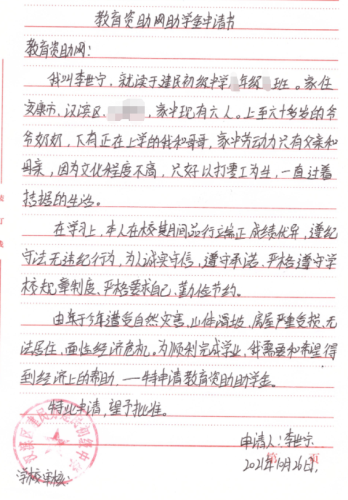 教育资助网助学金申请书
教育资助网:
我叫李世宁,就读于建民初级中学 年级 班。家住
安康市,汉滨区, 家中现有六人。上至六十多岁的爷
爷奶奶,下有正在上学的我和哥哥,家中劳动力只有父亲和
母亲,因为文化程度不高,只好以打零工为生,一直过着
拮据的生活。
在学习上,本人在校期间品行端正,成绩优异,遵纪
守法无违纪行为,为人诚实守信,遵守承诺、严格遵守学
校规章制度、严格要求自己,勤俭节约。
由于今年遭受自然灾害,山体滑坡,房屋严重受损,无
法居住,面临经济危机,为顺利完成学业,我需要和希望得
到经济上的帮助,——特申请教育资助助学金。
特此申请,望予批准。
申请人:李世宁
2021年 月26日
学校审核: